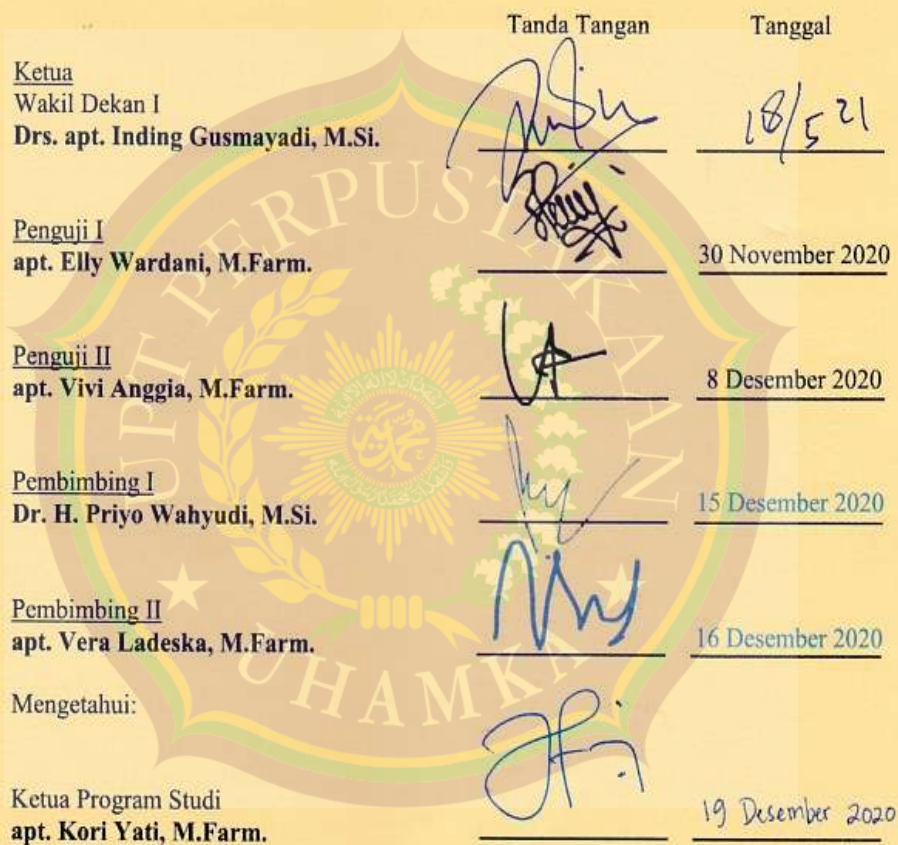 Tanda Tangan Tanggal
Ketua
Wakil Dekan I
Drs. apt. Inding Gusmayadi, M.Si.
18/5 21
Penguji I
apt. Elly Wardani, M.Farm.
30 November 2020
Penguji II
apt. Vivi Anggia, M.Farm.
8 Desember 2020
Pembimbing I
Dr. H. Priyo Wahyudi, M.Si.
15 Desember 2020
Pembimbing II
apt. Vera Ladeska, M.Farm.
16 Desember 2020
Mengetahui:
Ketua Program Studi
apt. Kori Yati, M.Farm.
19 Desember 2020
UPT PERPUSTAKAAN
UHAMKA